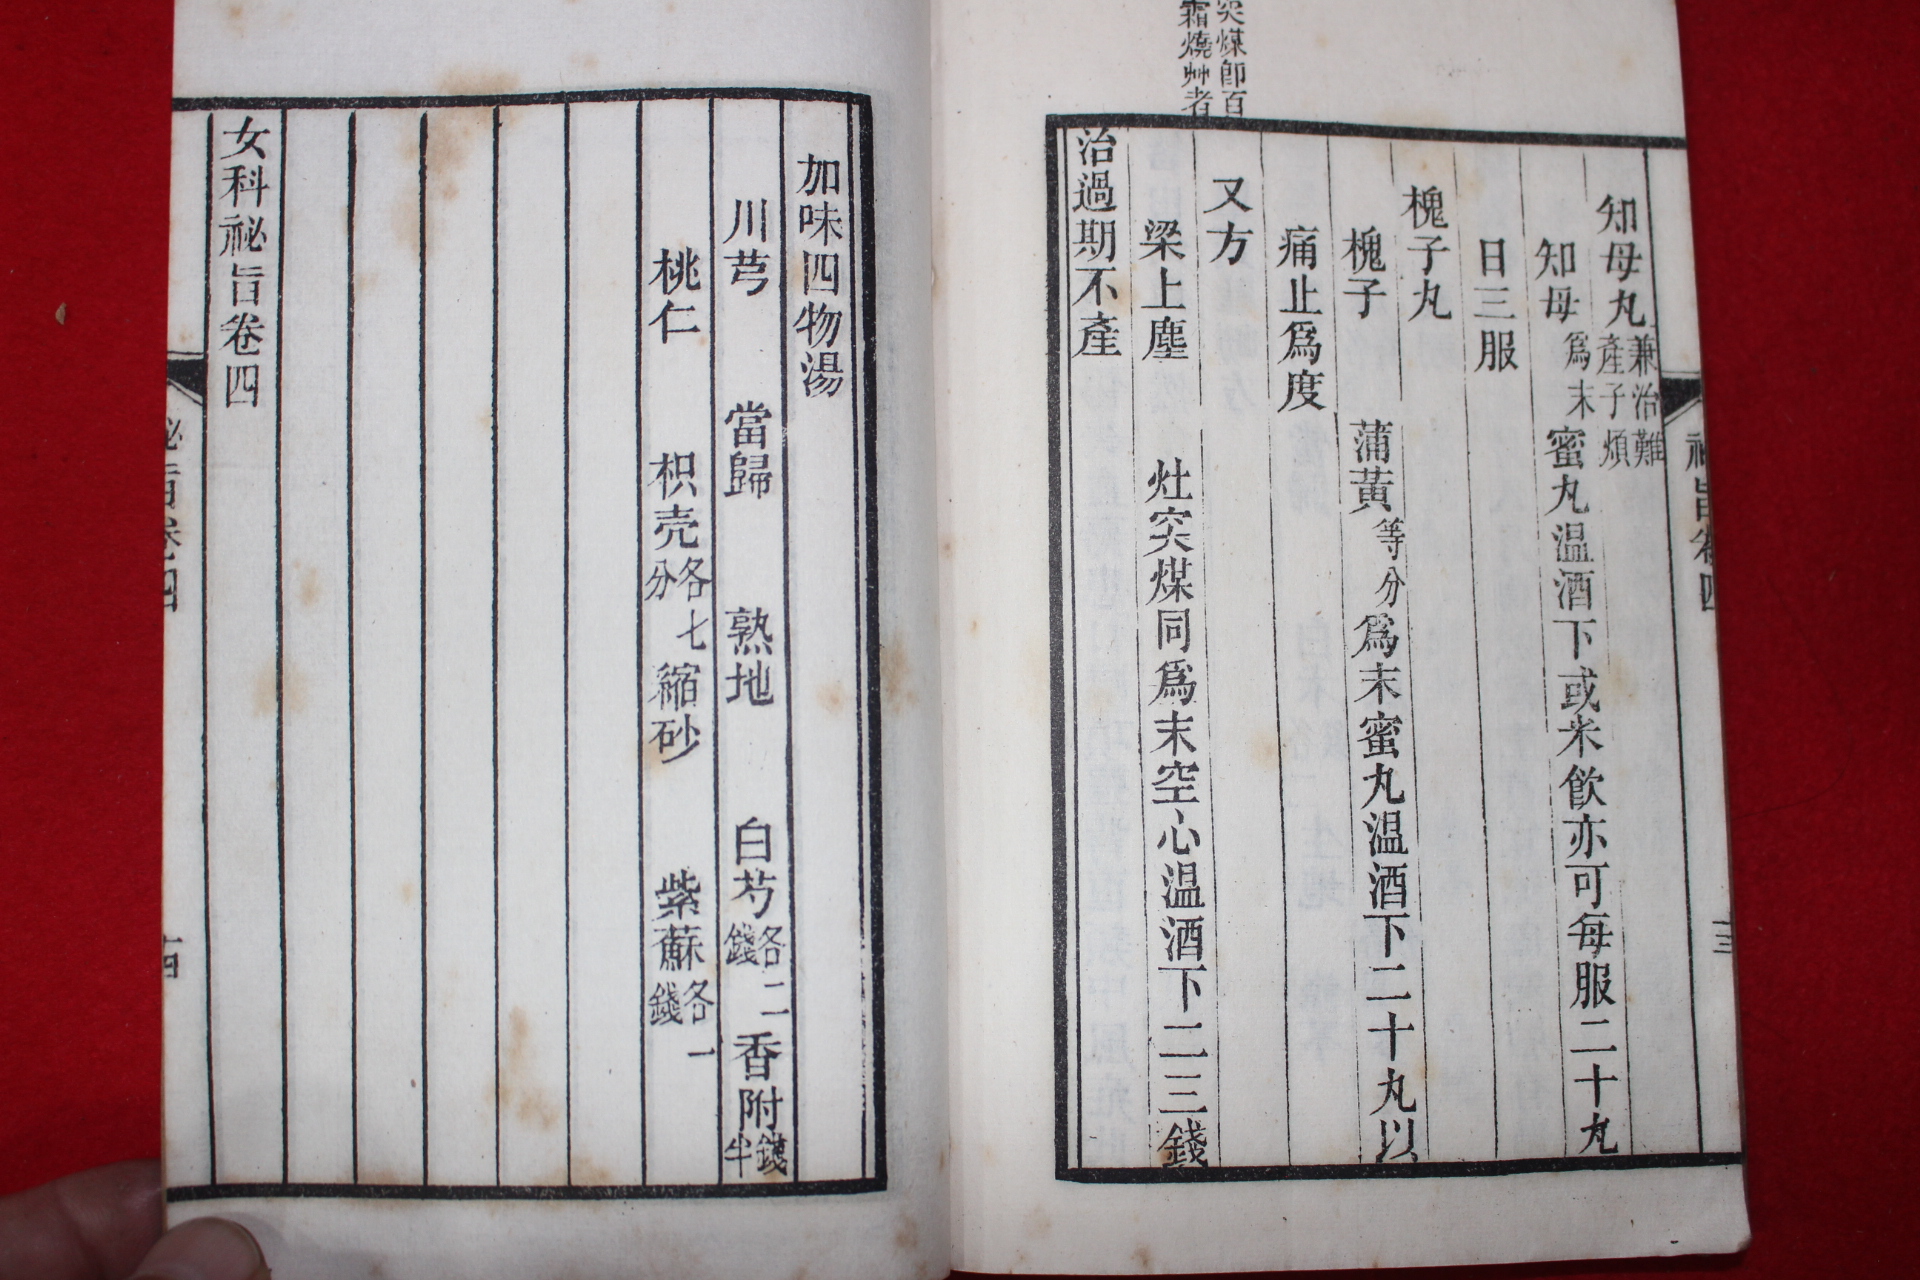 突煤即百
霜燒艸者
知母丸兼治難產子煩
知母為末蜜丸溫酒下或米飲亦可每服二十丸
日三服
槐子丸
槐子 蒲黃等分為末蜜丸溫酒下二十丸以
痛止為度
又方
梁上塵 灶突煤同為末空心溫酒下二三錢
治過期不產
加味四物湯
川芎 當歸 熟地 白芍各二錢香附錢半
桃仁 枳壳各七分縮砂 紫蘇各一錢
女科祕旨卷四